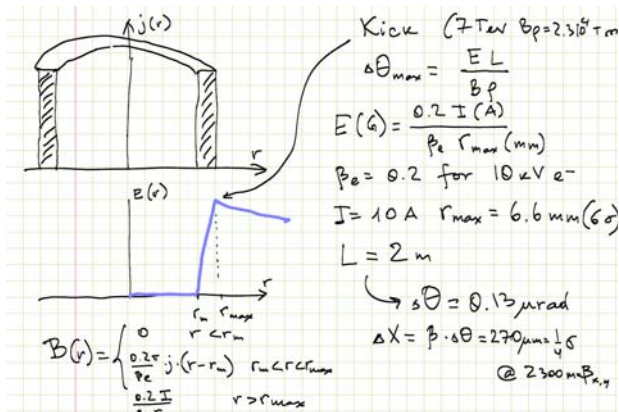 j(r)
r
E(r)
r
r_m r_max
B(r) = { 0 r < r_m
j·(r-r_m) r_m < r < r_max
0.2 I r > r_max
Kick (7 TeV Bρ=2.3 10⁴ T m
ΔΘ_max = E L / B ρ
E(G) = 0.2 I (A) / β_e r_max (mm)
β_e = 0.2 for 10 kV e-
I = 10 A r_max = 6.6 mm (6σ)
L = 2 m
ΔΘ = 0.13 μrad
ΔX = β·ΔΘ = 270 μm = 1/4 σ
@ 2300 m β_x,y